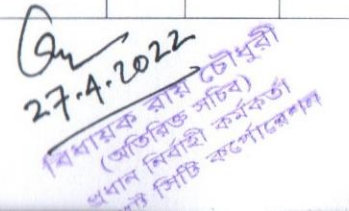 27.4.2022
বিধায়ক রায় চৌধুরী
(অতিরিক্ত সচিব)
প্রধান নির্বাহী কর্মকর্তা
সিটি কর্পোরেশন